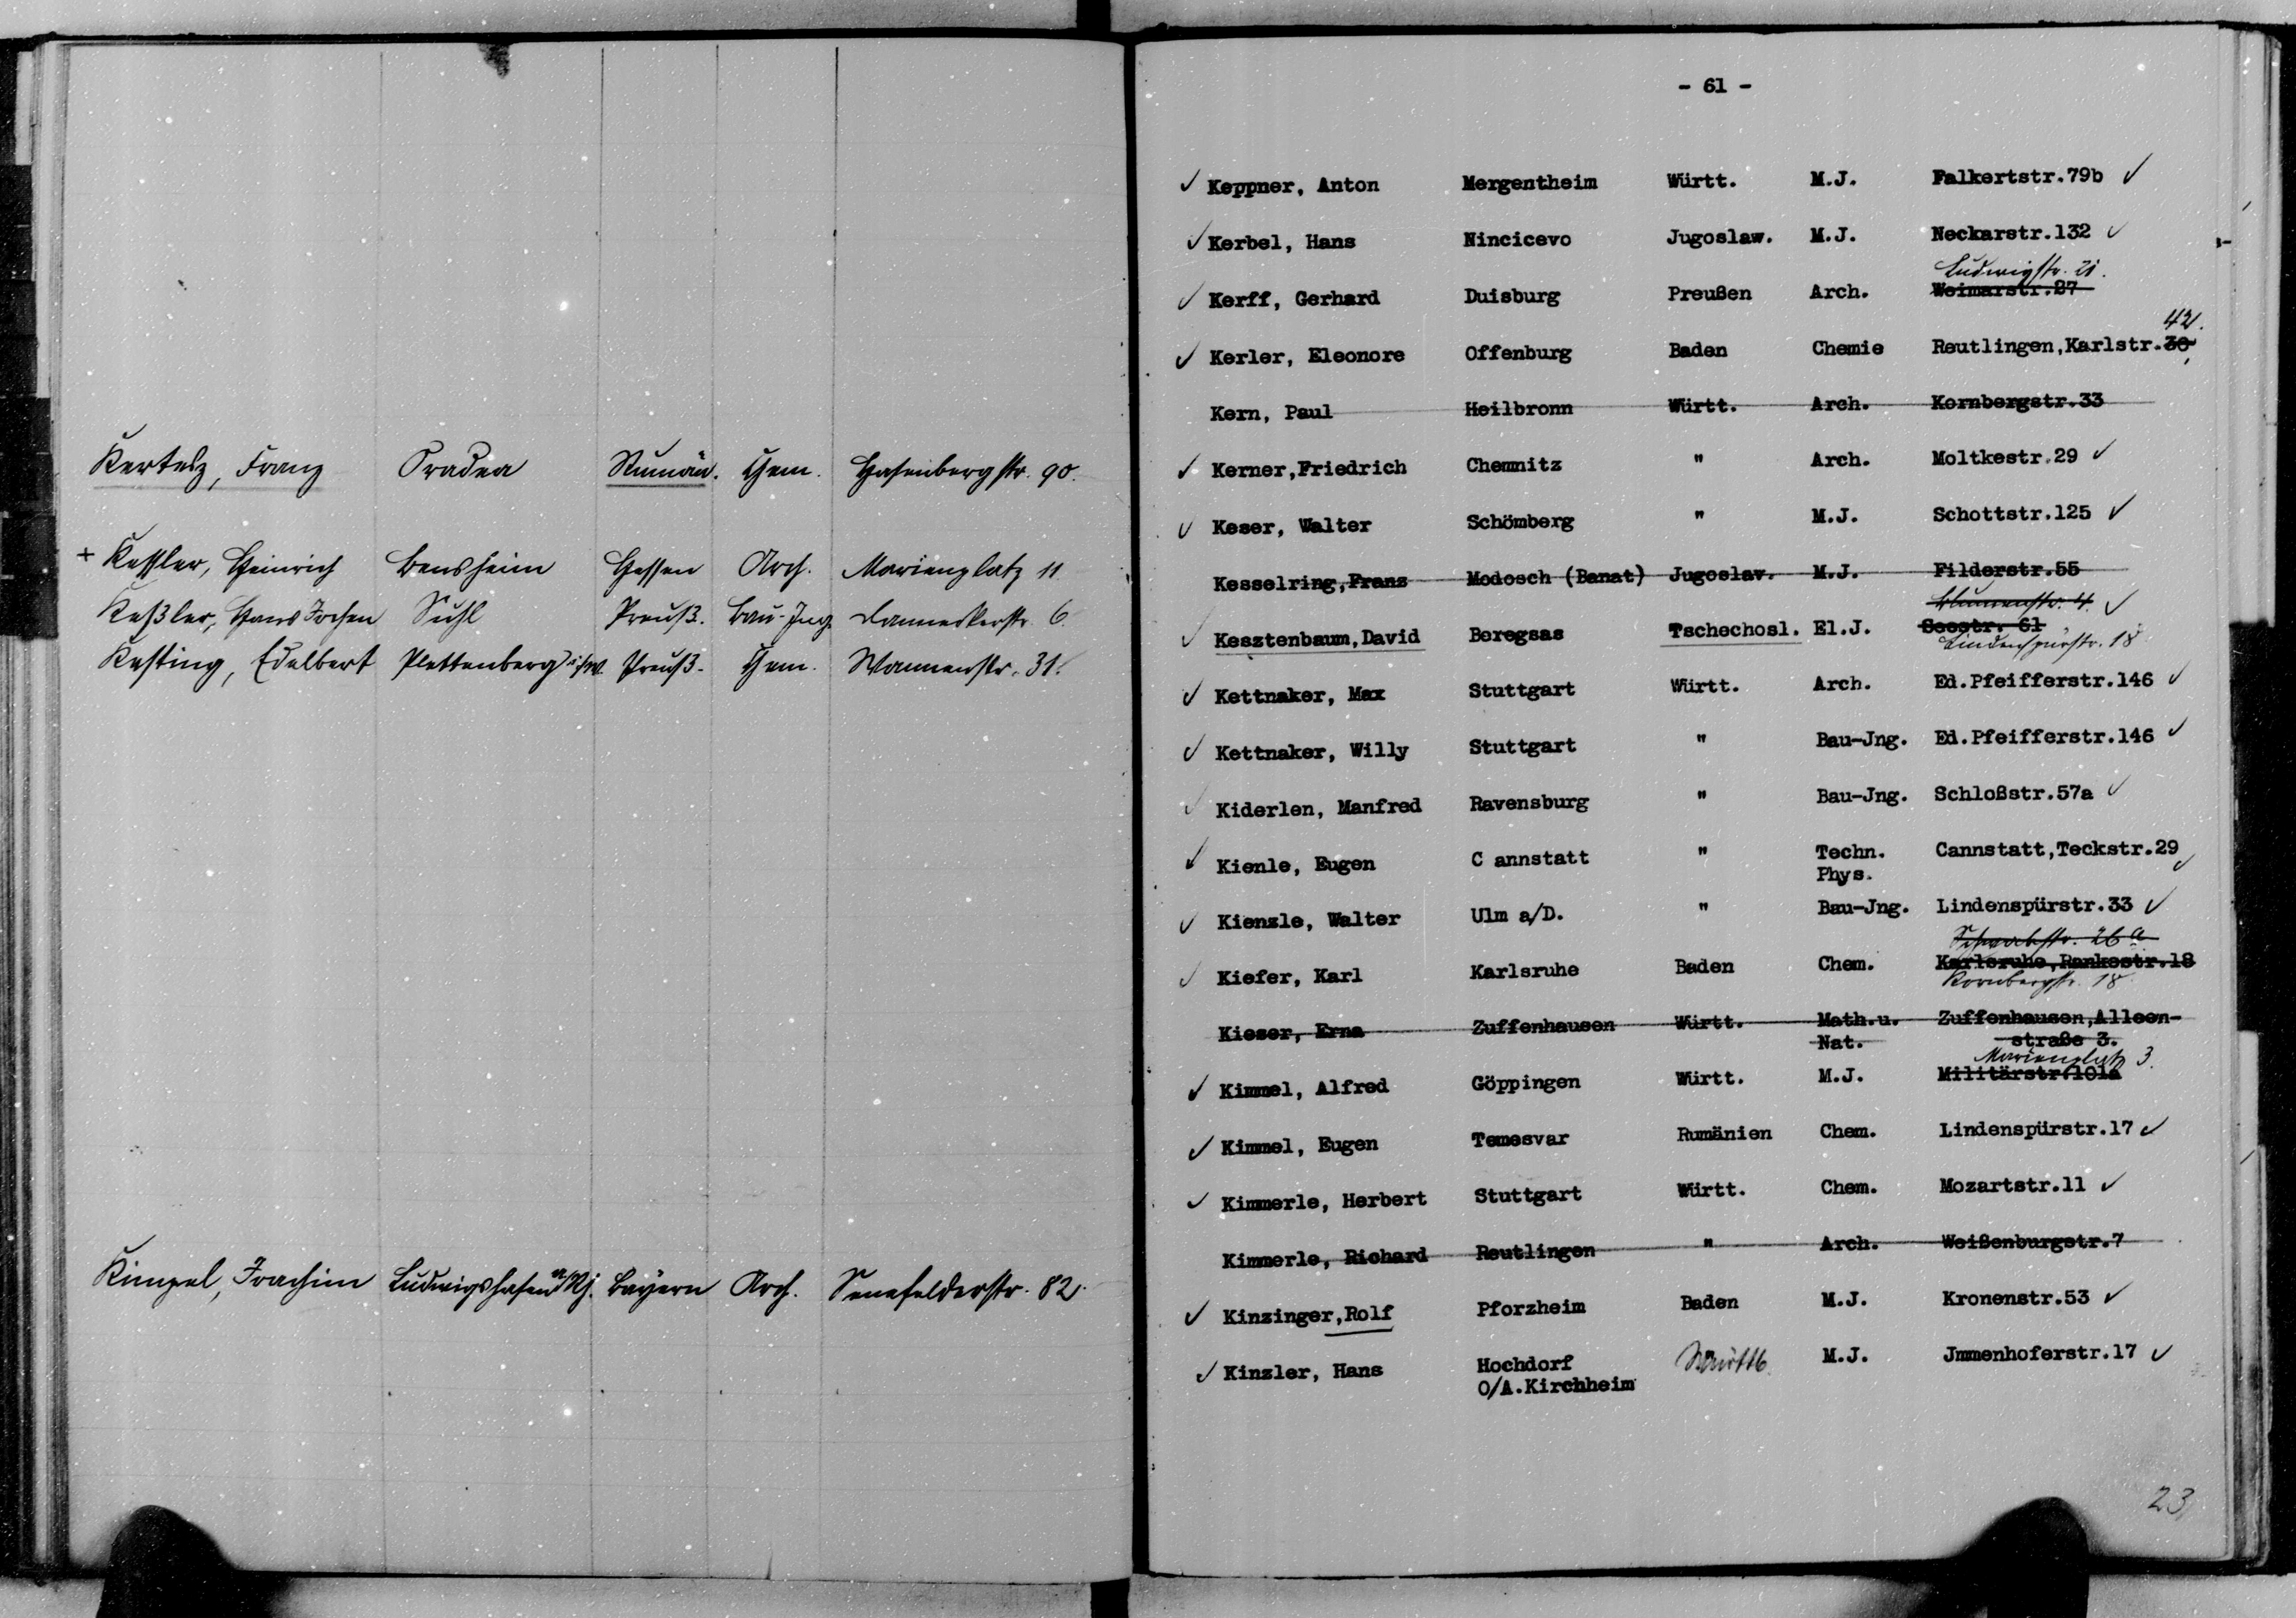 Kertesz, Franz Oradea Rumän. Chem. Hasenbergstr. 90.
+ Kessler, Heinrich Bensheim Hessen Arch. Marienplatz 11
Keßler, Hans Jochen Suhl Preuß. Bau-Ing. Danneckerstr. 6.
Kesting, Edelbert Plettenberg i/W. Preuß. Chem. Wannenstr. 31.
Kimpel, Joachim Ludwigshafen a/Rh. Bayern Arch. Senefelderstr. 82.
- 61 -
✓ Keppner, Anton Mergentheim Württ. M.J. Falkertstr.79b ✓
✓ Kerbel, Hans Nincicevo Jugoslaw. M.J. Neckarstr.132 ✓
Ludwigstr. 21.
✓ Kerff, Gerhard Duisburg Preußen Arch. Weimarstr.27
42.
✓ Kerler, Eleonore Offenburg Baden Chemie Reutlingen,Karlstr.30
Kern, Paul Heilbronn Württ. Arch. Kornbergstr.33
✓ Kerner,Friedrich Chemnitz " Arch. Moltkestr.29 ✓
✓ Keser, Walter Schömberg " M.J. Schottstr.125 ✓
Kesselring,Franz Modosch (Banat) Jugoslav. M.J. Filderstr.55
Blumenstr. 4. ✓
✓ Kesztenbaum,David Beregsas Tschechosl. El.J. Seestr. 61
Lindenspürstr. 18
✓ Kettnaker, Max Stuttgart Württ. Arch. Ed.Pfeifferstr.146 ✓
✓ Kettnaker, Willy Stuttgart " Bau-Jng. Ed.Pfeifferstr.146 ✓
✓ Kiderlen, Manfred Ravensburg " Bau-Jng. Schloßstr.57a ✓
✓ Kienle, Eugen C annstatt " Techn. Cannstatt,Teckstr.29 ✓
Phys.
✓ Kienzle, Walter Ulm a/D. " Bau-Jng. Lindenspürstr.33 ✓
Schwabstr. 26 a
✓ Kiefer, Karl Karlsruhe Baden Chem. Karlsruhe,Rankestr.18
Kornbergstr. 18
Kieser, Erna Zuffenhausen Württ. Math.u. Zuffenhausen,Alleen-
Nat. straße 3.
Marienplatz 3.
✓ Kimmel, Alfred Göppingen Württ. M.J. Militärstr.101a
✓ Kimmel, Eugen Temesvar Rumänien Chem. Lindenspürstr.17 ✓
✓ Kimmerle, Herbert Stuttgart Württ. Chem. Mozartstr.11 ✓
Kimmerle, Richard Reutlingen " Arch. Weißenburgstr.7
✓ Kinzinger,Rolf Pforzheim Baden M.J. Kronenstr.53 ✓
✓ Kinzler, Hans Hochdorf Württb. M.J. Jmmenhoferstr.17 ✓
O/A.Kirchheim
23